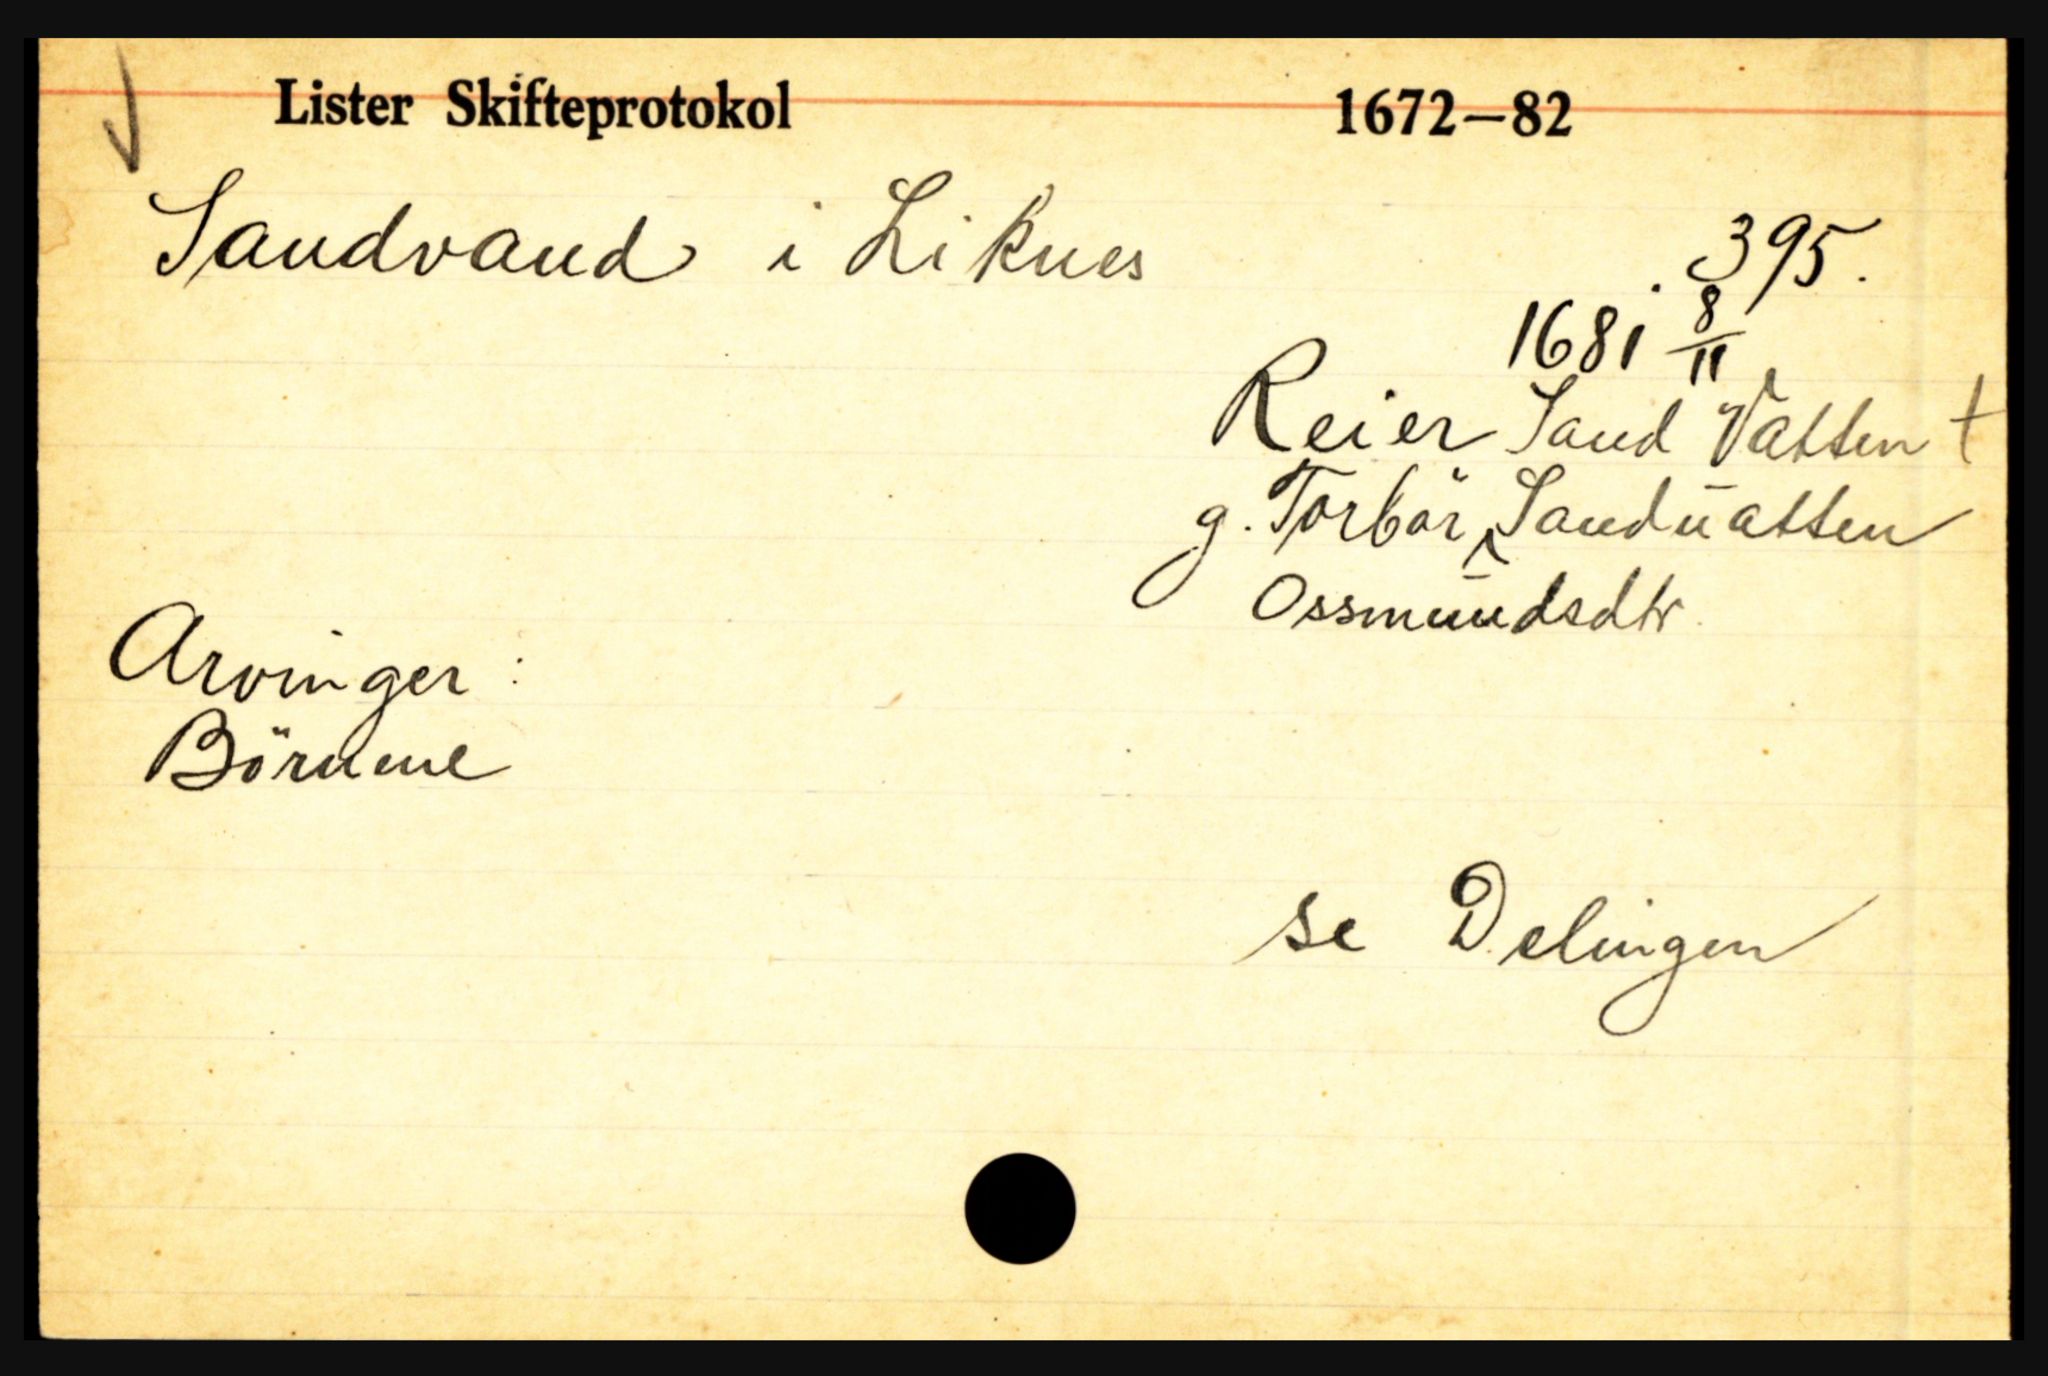 Lister Skifteprotokol 1672—82
Sandvand i Liknes
395.
1681 8/11
Reier Sand Vatten †
g. Torbör Sandūatten
Ossmūndsdtr.
Arvinger:
Börnene
se Delingen